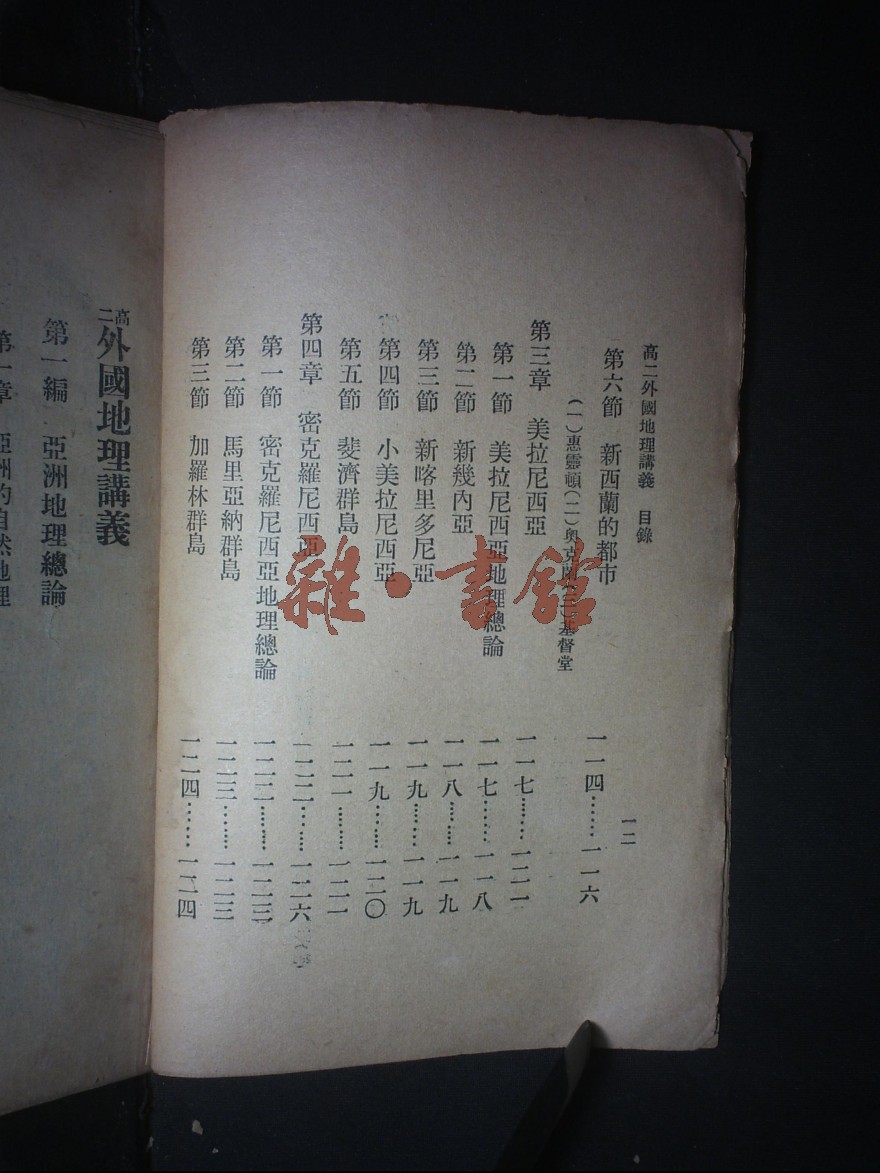 高二外國地理講義 目錄 一二
第六節 新西蘭的都市 一一四……一一六
（一）惠靈頓（二）奧克蘭（三）基督堂
第三章 美拉尼西亞 一一七……一二一
第一節 美拉尼西亞地理總論 一一七……一一八
第二節 新幾內亞 一一八……一一九
第三節 新喀里多尼亞 一一九……一一九
第四節 小美拉尼西亞 一一九……一二〇
第五節 斐濟群島 一二一……一二一
第四章 密克羅尼西亞 一二二……一二六
第一節 密克羅尼西亞地理總論 一二二……一二三
第二節 馬里亞納群島 一二三……一二三
第三節 加羅林群島 一二四……一二四
高二外國地理講義
第一編 亞洲地理總論
第一章 亞洲的自然地理
雜·書館